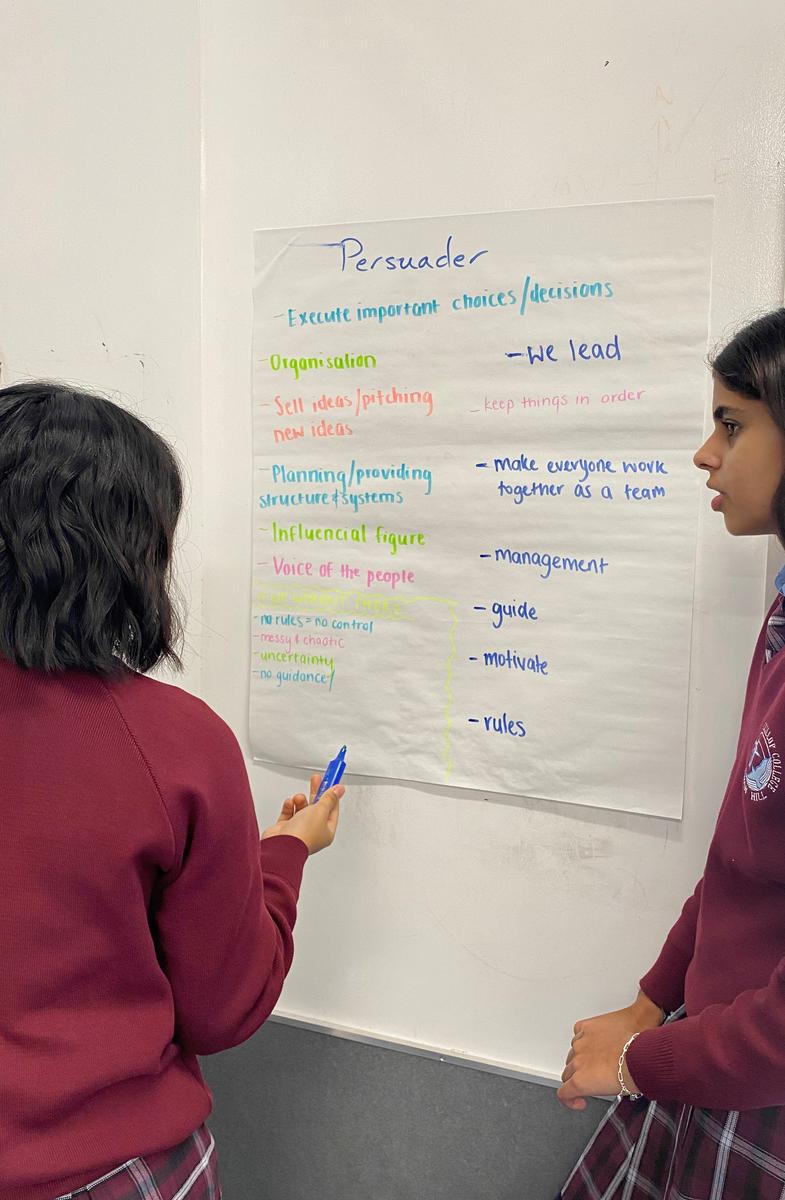 Persuader
- Execute important choices/decisions
- Organisation
- Sell ideas/pitching
new ideas
- Planning/providing
structure & systems
- Influencial figure
- Voice of the people
- no rules = no control
- messy & chaotic
- uncertainty
- no guidance
- we lead
- keep things in order
- make everyone work
together as a team
- management
- guide
- motivate
- rules
COLLEGE
HILL